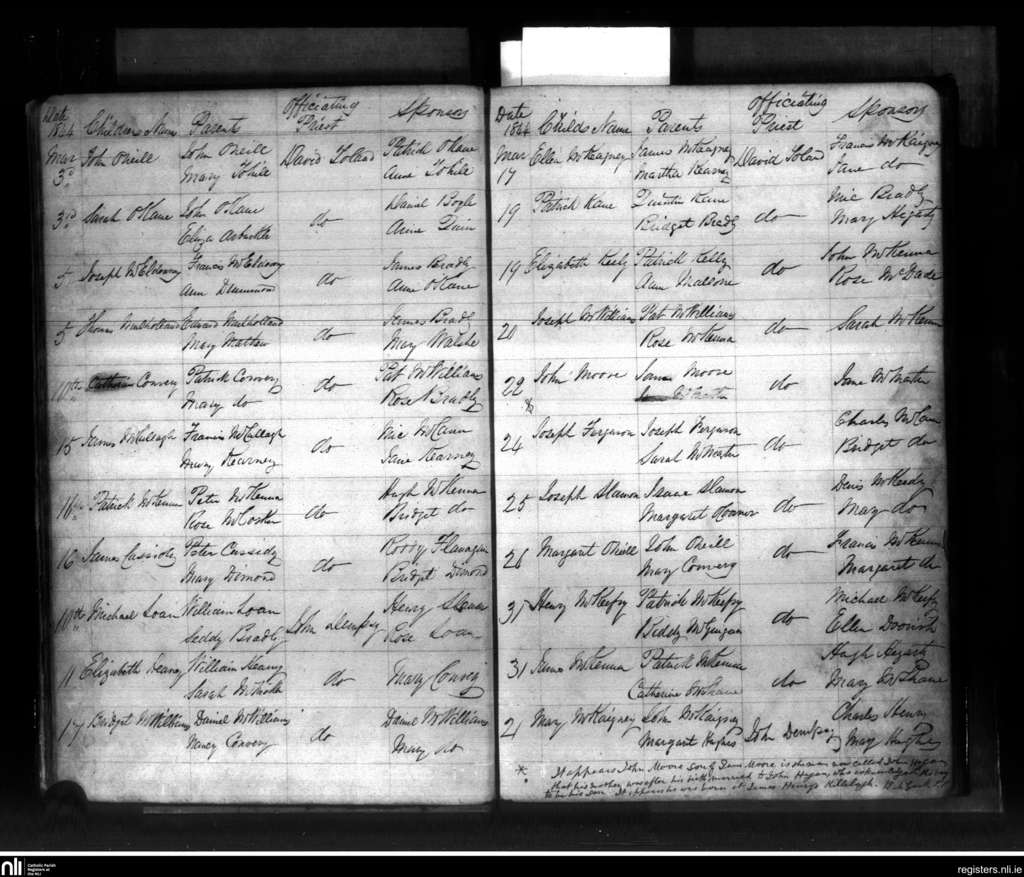 Date 1844 Childrens Name Parents Officiating Priest Sponsors
Mar 3rd John Oneill John Oneill David Toland Patrick OKane
Mary Tohill Anne Tohill
3rd Sarah OKane John OKane do Daniel Boyle
Eliza Arbuckle Anne Quin
5 Joseph McEldowney Francis McEldowney do James Bradly
Ann Drummond Anne OKane
5 Thomas Mulholland Edward Mulholland do James Bradly
Mary Mathew Mary Walshe
10th Catherine Convery Patrick Convery do Pat McWilliams
Mary do Rose Bradly
15 James McCullagh Francis McCullagh do Mic McCann
Kearney Jane Kearney
16th Patrick McKenna Peter McKenna do Hugh McKenna
Rose McCosker Bridget do
16 James Cassidy Peter Cassidy do Roddy Flanagan
Mary Dimond Bridget Dimond
10th Michael Loan William Loan John Dempsy Henry
Biddy Bradly Rose Loan
11 Elizabeth William do Mary
Sarah
17 Bridget McWilliams Daniel McWilliams do Daniel McWilliams
Nancy Convery Mary do
Date 1844 Childs Name Parents Officiating Priest Sponsors
Mar 17 Ellen McKeagney James McKeagney David Toland Francis McKeagney
Martha Kearney Jane do
19 Patrick Kane Quintin Kane do Mic Bradly
Bridget Bradly Mary Hegarty
19 Elizabeth Kelly Patrick Kelly do John McKenna
Ann Mallone Rose McDade
20 Joseph McWilliams Pat McWilliams do Sarah McKenna
Rose McKenna
22 * John Moore Sam Moore do Jane
24 Joseph Ferguson Joseph Ferguson do Charles McCann
Sarah Bridget do
25 Joseph Slamon Isaac Slamon do Denis
Margaret Connor Mary do
26 Margaret Oneill John Oneill do Francis McKenna
Mary Convery Margaret do
31 Henry McKeefry Patrick McKeefry do Michael McKeefry
Biddy McGuigan Ellen
31 James McKenna Patrick McKenna do Hugh Hegarty
Catherine McShane Mary McShane
21 Mary McKeigney John McKeigney John Dempsy Charles Henry
Margaret Hughes Mary Hughes
* It appears John Moore son of Sam Moore is now called John Hagan
that his mother was after his birth married to John Hagan, who acknowledged
to be his son. It appears he was born at James Henrys Killelagh.
nli Catholic Parish
Registers at
the NLI
registers.nli.ie